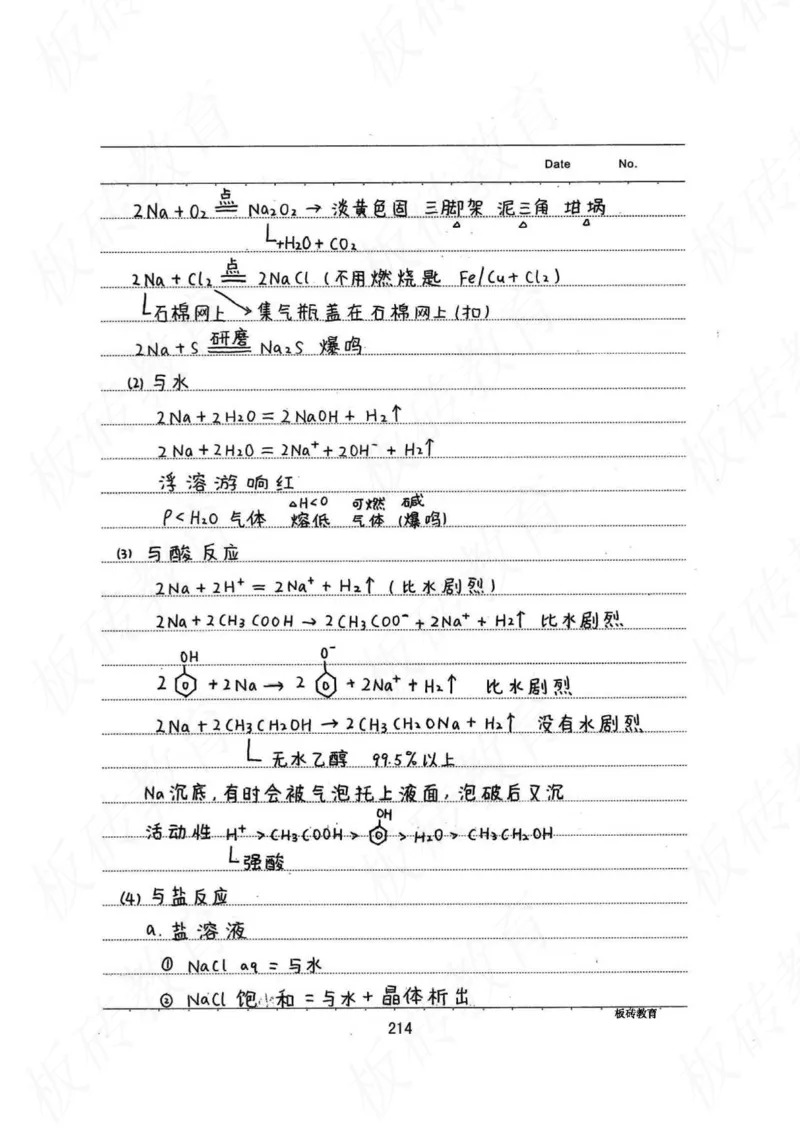 Date No.
2Na + O₂ 点== Na₂O₂ → 淡黄色固 三脚架 泥三角 坩埚
△ △ △
└+H₂O + CO₂
2Na + Cl₂ 点== 2NaCl (不用燃烧匙 Fe/Cu + Cl₂)
└石棉网上 ↘集气瓶盖在石棉网上(扣)
2Na + S 研磨== Na₂S 爆鸣
(2) 与水
2Na + 2H₂O = 2NaOH + H₂↑
2Na + 2H₂O = 2Na⁺ + 2OH⁻ + H₂↑
浮 溶 游 响 红
△H<0 可燃 碱
ρ<H₂O 气体 熔低 气体 (爆鸣)
(3) 与酸反应
2Na + 2H⁺ = 2Na⁺ + H₂↑ (比水剧烈)
2Na + 2CH₃COOH → 2CH₃COO⁻ + 2Na⁺ + H₂↑ 比水剧烈
OH O⁻
2 + 2Na → 2 + 2Na⁺ + H₂↑ 比水剧烈
2Na + 2CH₃CH₂OH → 2CH₃CH₂ONa + H₂↑ 没有水剧烈
└ 无水乙醇 99.5%以上
Na沉底,有时会被气泡托上液面,泡破后又沉
OH
活动性 H⁺ > CH₃COOH > > H₂O > CH₃CH₂OH
└强酸
(4) 与盐反应
a. 盐溶液
① NaCl aq = 与水
② NaCl 饱和 = 与水 + 晶体析出
板砖教育
214